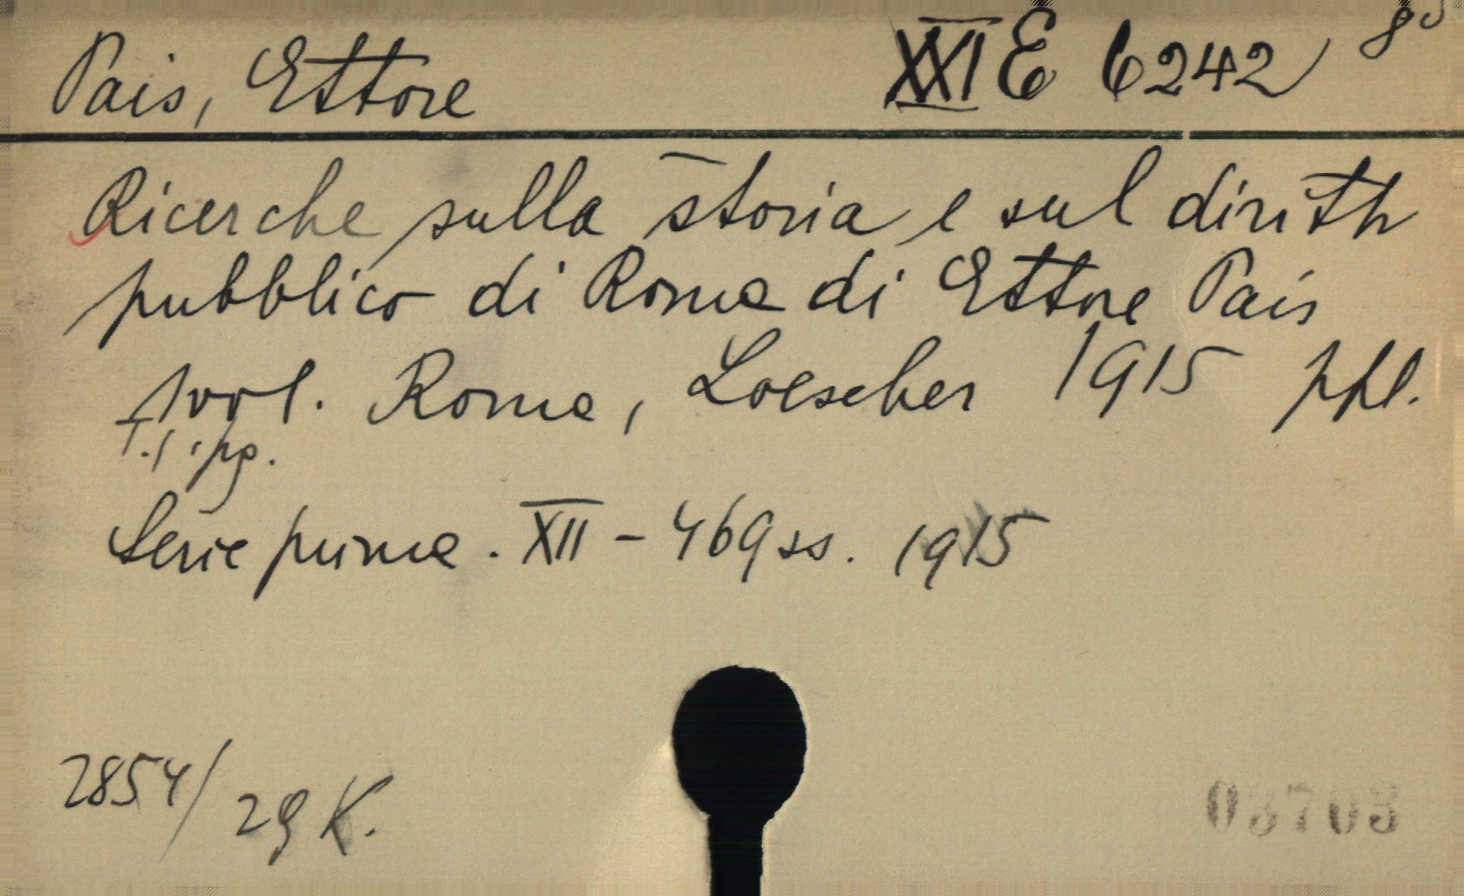 Pais, Ettore XXI E 6242 8°
Ricerche sulla storia e sul diritto
pubblico di Roma di Ettore Pais
1 vol. Roma, Loescher 1915 ppl.
T.1. pg.
Serie prima. XII - 469 ss. 1915
2854/29 K.
03703